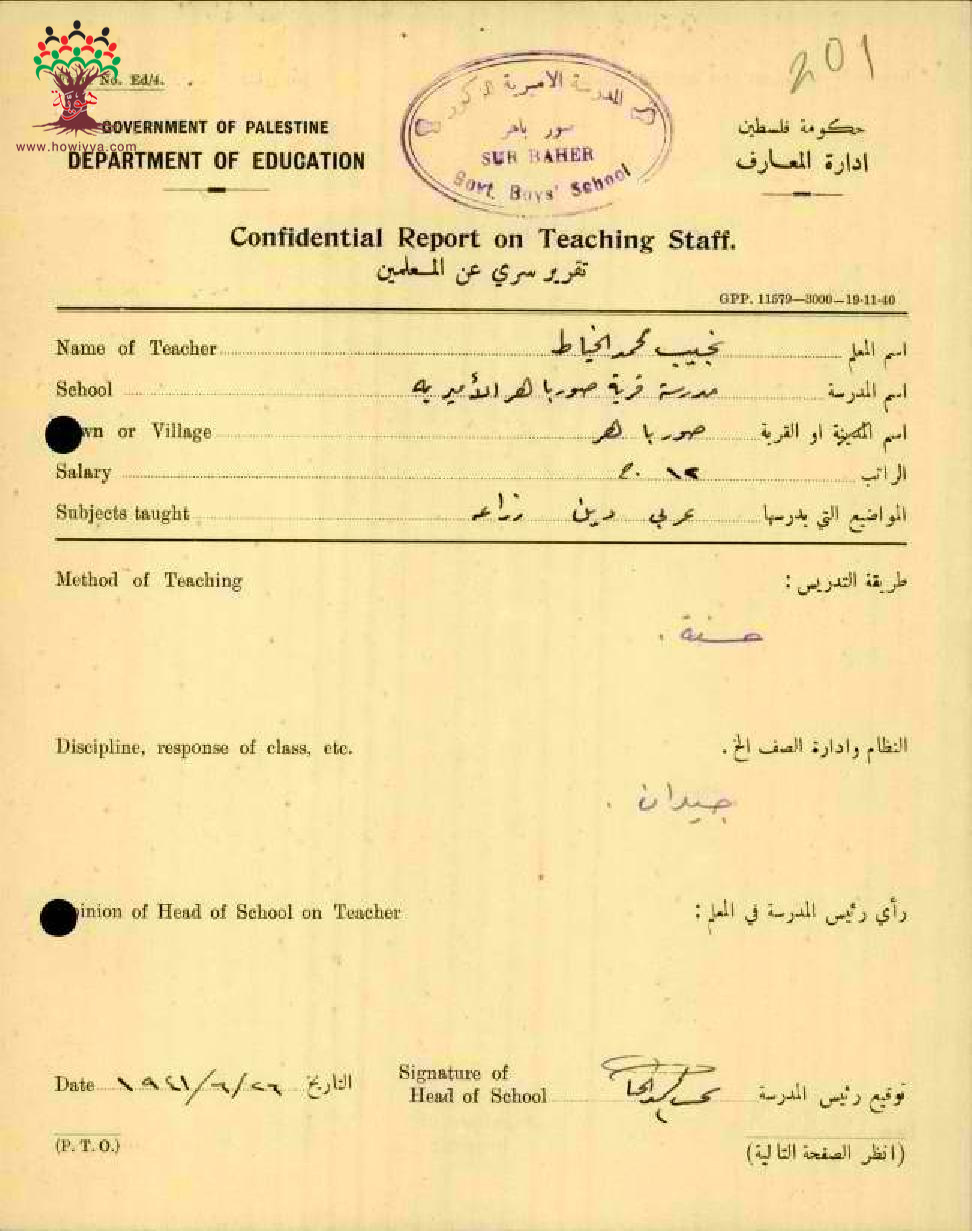 No. Ed/4.
201
هوية
www.howiyya.com
GOVERNMENT OF PALESTINE
DEPARTMENT OF EDUCATION
المدرسة الاميرية للذكور
صور باهر
SUR BAHER
Govt. Boys' School
حكومة فلسطين
ادارة المعارف
Confidential Report on Teaching Staff.
تقرير سري عن المعلمين
GPP. 11579—3000—19-11-40
Name of Teacher نجيب محمد الخياط اسم المعلم
School مدرسة قرية صور باهر الأميريه اسم المدرسة
wn or Village صور باهر اسم المدينة او القرية
Salary ١٢ ج. الراتب
Subjects taught عربي دين زراعه المواضيع التي يدرسها
Method of Teaching طريقة التدريس :
حسنة .
Discipline, response of class, etc. النظام وادارة الصف الخ .
جيدان .
inion of Head of School on Teacher رأي رئيس المدرسة في المعلم :
Date ١٩٤١/٦/٢٦ التاريخ
Signature of
Head of School توقيع رئيس المدرسة
(P. T. O.) (انظر الصفحة التالية)